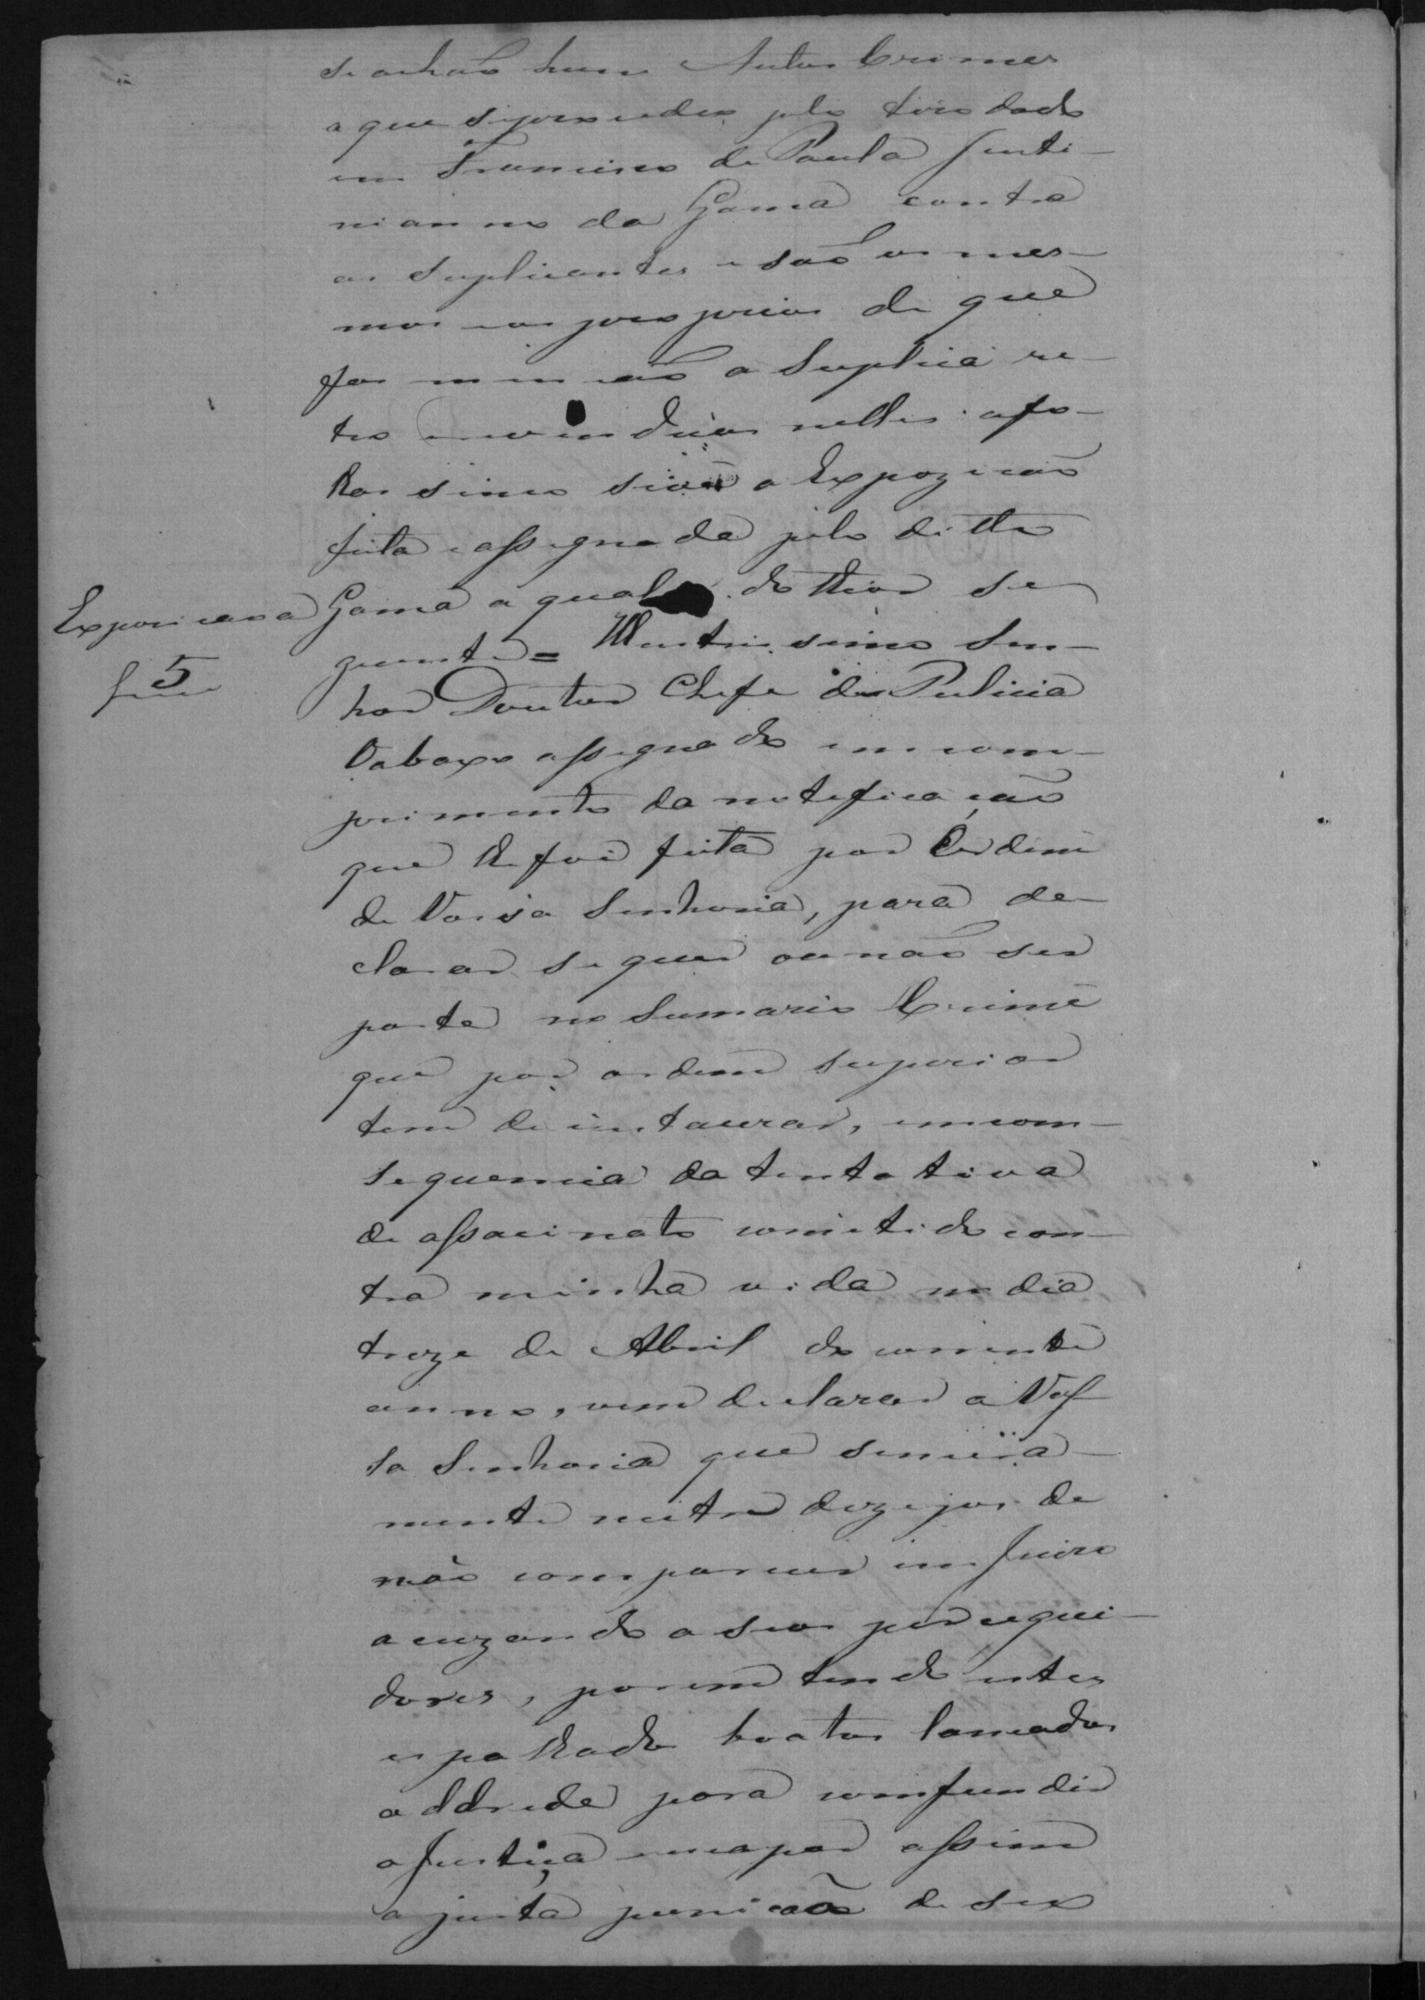 se achaõ huns Autos Crimes
a que se procedeo pelo tira dado
em Francisco de Paula Justi-
nianno da Gama contra
os Suplicantes e saõ os mes-
mos e os proprios de que
faz mencaõ a Suplica re-
tro e nelles afo-
lhas sinco a Expozicaõ
feita e assignada pelo ditto
Gama a qual do theor se
guinte = Illustrissimo Sen-
hor Doutor Chefe de Policia
Oabaxo assignado em com-
primento da notificacaõ
que lhe foi feita por Ordem
de Vossa Senhoria, para de-
clarar se quer ou naõ ser
parte no Sumario Crime
que por ordem superior
tem de instaurar, em con-
sequencia da tentativa
de assacinato cometido con-
tra minha vida no dia
treze de Abril do corrente
anno, vem declarar a Vos
sa Senhoria que sincera-
mente nutre dezejos de
não comparecer em Juizo
acuzando a seos persegui-
dores, porem tendo estes
espalhado boatos lancados
addrede para comfundir
a Justiça escapar assim
a justa punicaõ de seo
Exposicaõ a
folhas 5